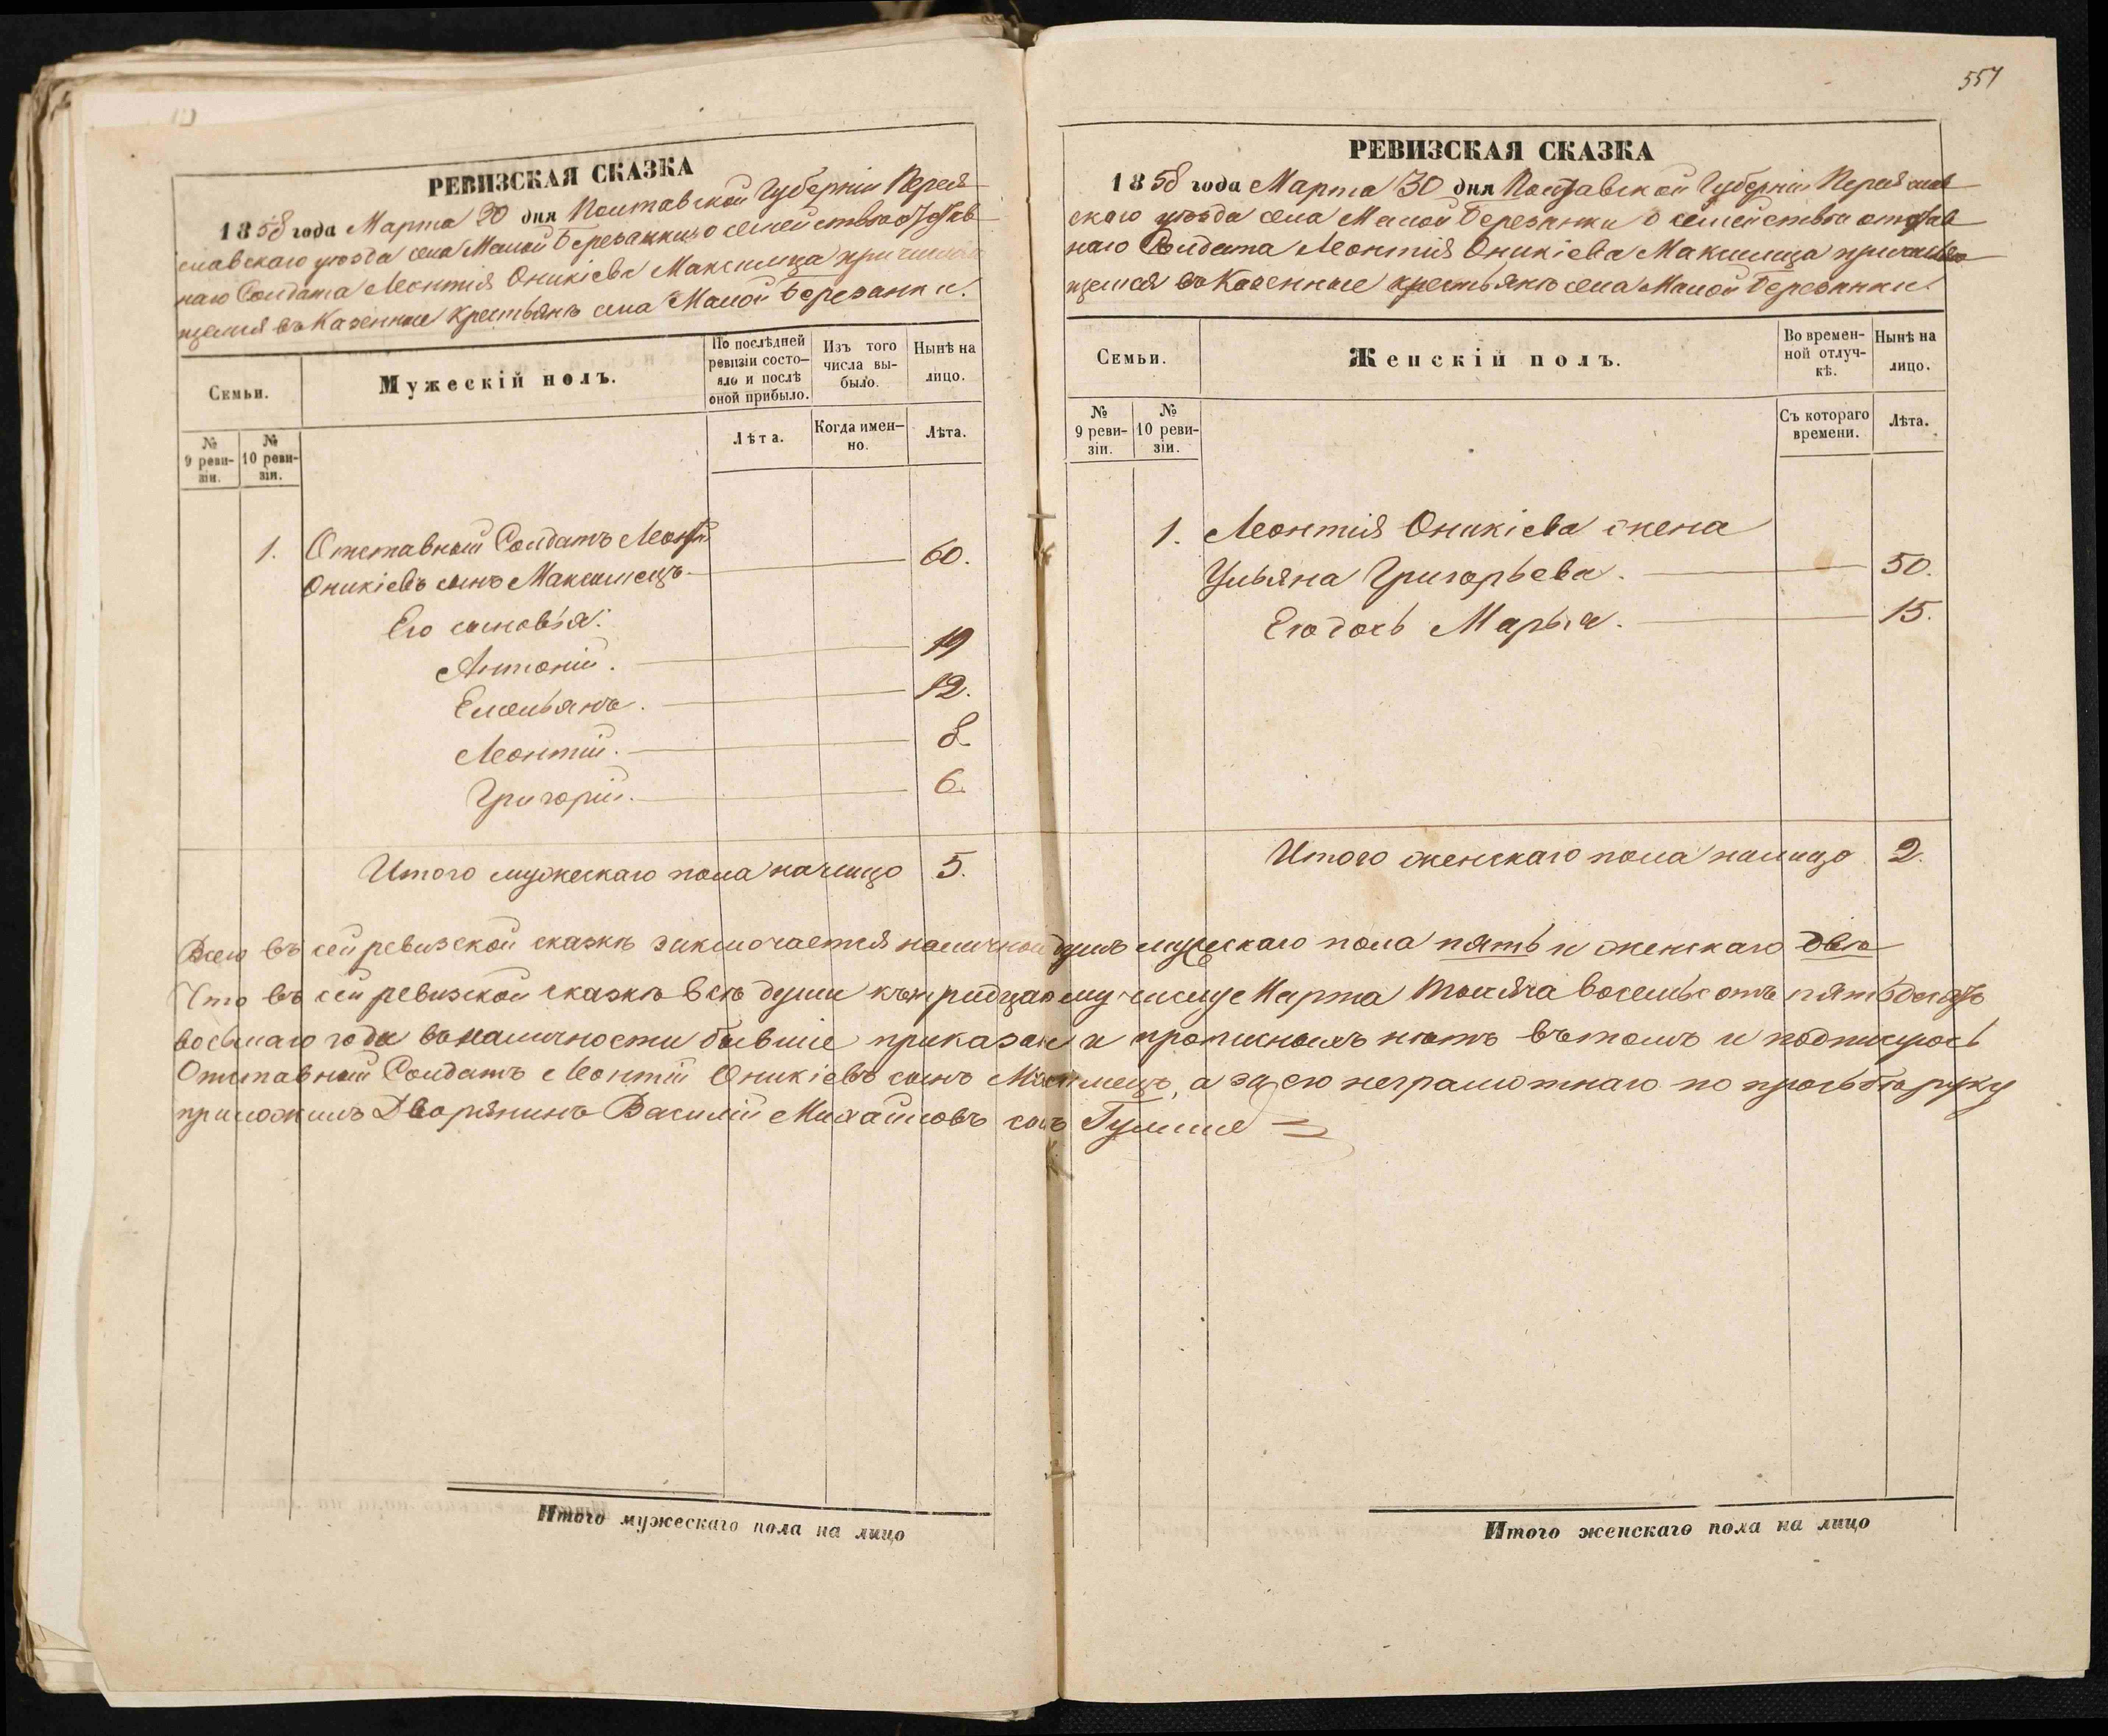 РЕВИЗСКАЯ СКАЗКА
1858 года Марта 30 дня Полтавской Губерніи Перея-
славскаго уѣзда села Малой Березанки о семействѣ отстав-
наго Солдата Леонтія Оникіева Максимца причисляю
щемся въ Казенные крестьянъ села Малой Березанки.
Семьи.
Мужескій полъ.
По послѣдней
ревизіи состо-
яло и послѣ
оной прибыло.
Изъ того
числа вы-
было.
Нынѣ на
лицо.
№
9 реви-
зіи.
№
10 реви-
зіи.
Лѣта.
Когда имен-
но.
Лѣта.
1. Отставной Солдатъ Леонтій
Оникіевъ сынъ Максимецъ 60.
Его сыновья:
Антоній. 19
Емельянъ. 12.
Леонтій. 8.
Григорій. 6.
Итого мужескаго пола налицо 5.
557
РЕВИЗСКАЯ СКАЗКА
1858 года Марта 30 дня Полтавской Губерніи Переяслав
скаго уѣзда села Малой Березанки о семействѣ отстав
наго Солдата Леонтія Оникіева Максимца причисляю
щемся въ Казенные крестьянъ села Малой Березанки.
Семьи.
Женскій полъ.
Во времен-
ной отлуч-
кѣ.
Нынѣ на
лицо.
№
9 реви-
зіи.
№
10 реви-
зіи.
Съ котораго
времени.
Лѣта.
1. Леонтія Оникіева жена
Ульяна Григорьева. 50.
Его дочь Марья. 15.
Итого женскаго пола налицо 2.
Всего въ сей ревизской сказкѣ заключается наличной душъ мужескаго пола пять и женскаго двѣ
Что въ сей ревизской сказкѣ всѣ души къ тридцатому числу Марта тысяча восемьсотъ пятьдесятъ
восьмаго года въ наличности бывшіе приказаны и прописныхъ нѣтъ въ томъ и подписуюсь
Отставной Солдатъ Леонтій Оникіевъ сынъ Максимецъ, а за его неграмотнаго по прозьбѣ руку
приложилъ Дворянинъ Василій Михайловъ сынъ
Итого мужескаго пола на лицо
Итого женскаго пола на лицо